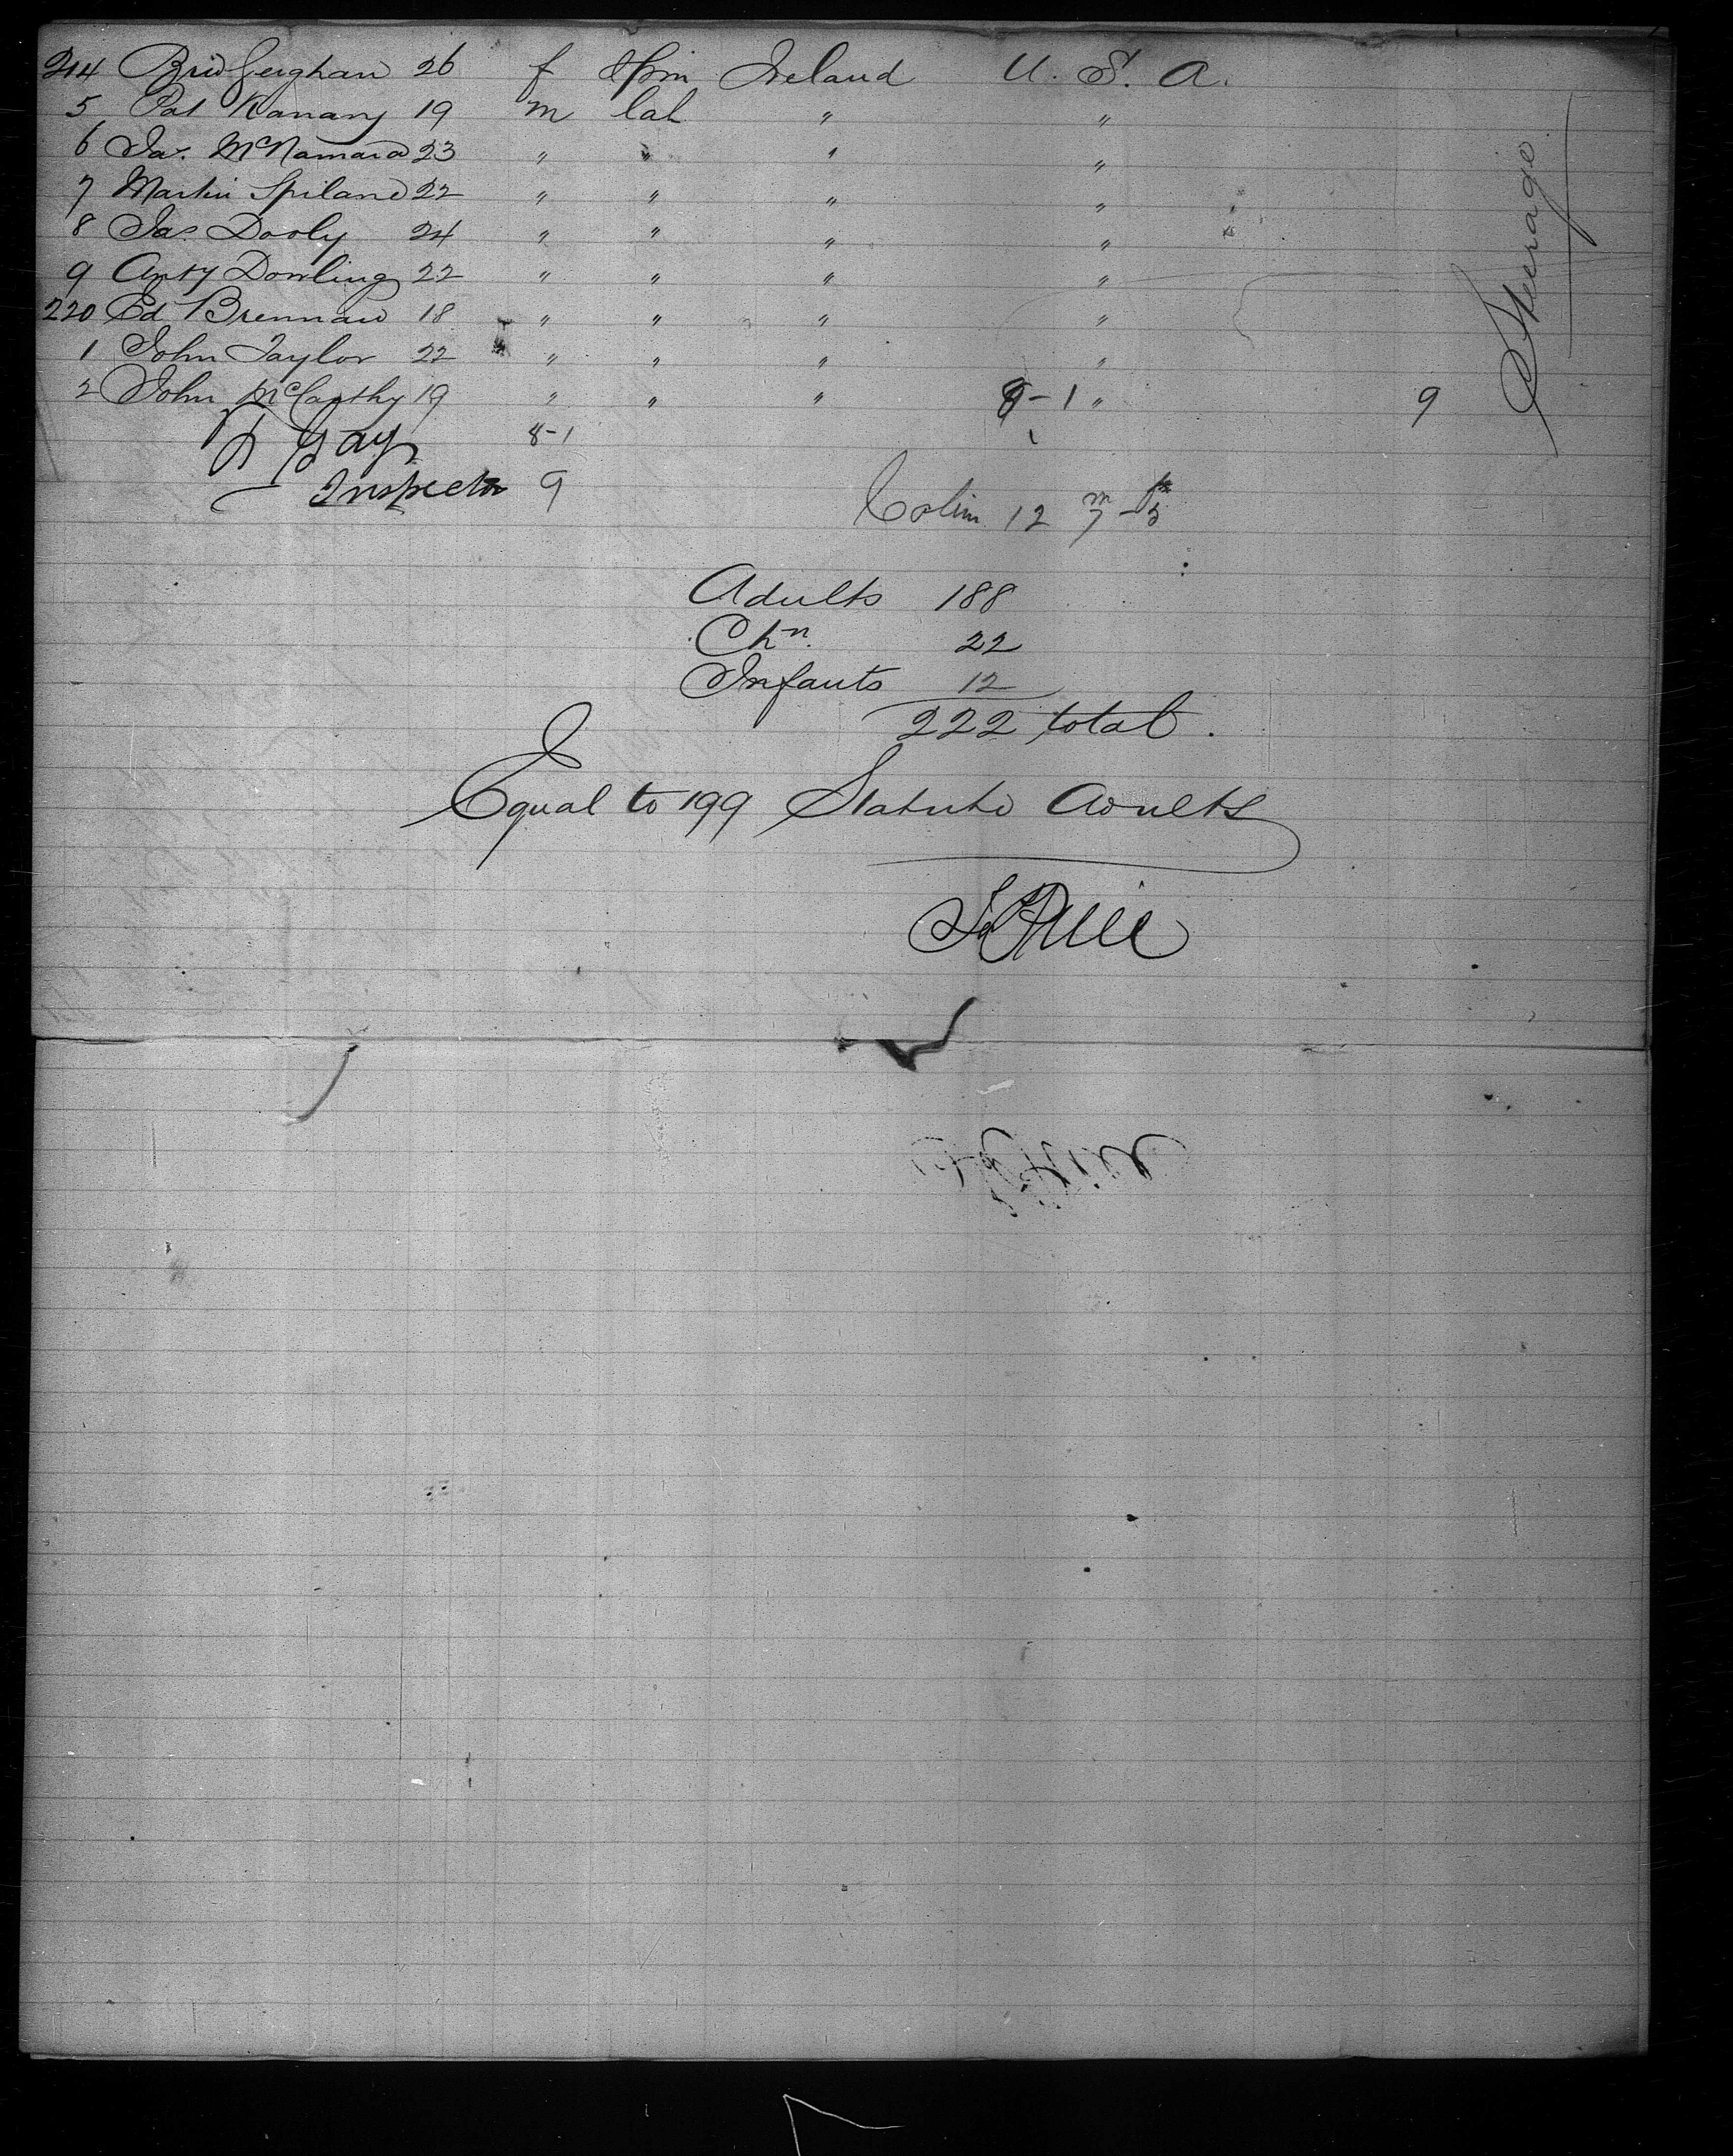 214 Brid Geighan 26 f Spin Ireland U. S. A.
5 Pat Kanany 19 m lab " "
6 Ja. McNamara 23 " " " "
7 Martin Spiland 22 " " " "
8 Jas. Dooly 24 " " " "
9 Anty Dowling 22 " " " "
220 Ed Brennan 18 " " " "
1 John Taylor 22 " " " "
2 John McCarthy 19 " " " 8-1 " 9
Steerage
Gay 8-1
Inspector 9
12 m 7 -
Adults 188
Chn. 22
Infants 12
222 total.
Equal to 199 Statute Adults